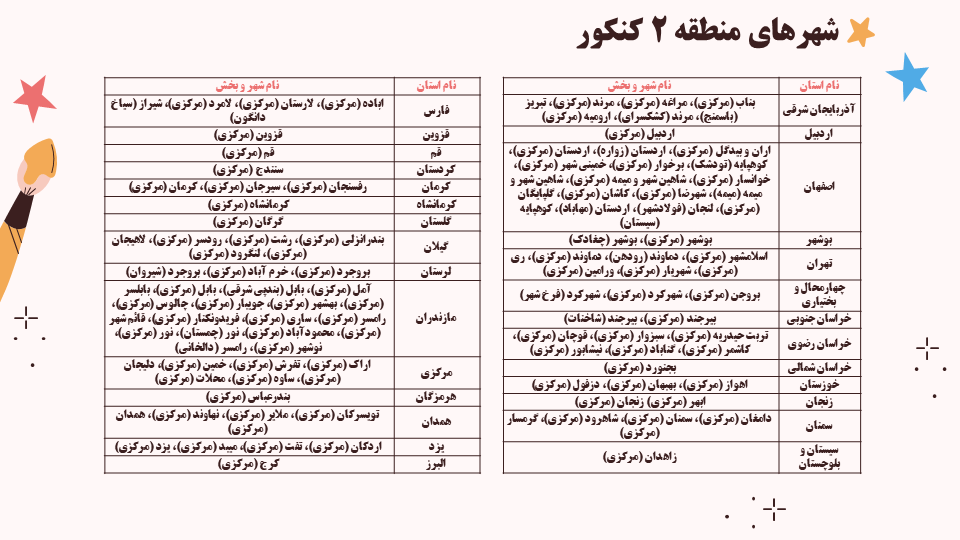 شهرهای منطقه ۲ کنکور
نام استان	نام شهر و بخش
آذربایجان شرقی	بناب (مرکزی)، مراغه (مرکزی)، مرند (مرکزی)، تبریز
(باسمنج)، مرند (کشکسرای)، ارومیه (مرکزی)
اردبیل	اردبیل (مرکزی)
اصفهان	اران و بیدگل (مرکزی)، اردستان (زواره)، اردستان (مرکزی)،
کوهپایه (تودشک)، برخوار (مرکزی)، خمینی شهر (مرکزی)،
خوانسار (مرکزی)، شاهین شهر و میمه (مرکزی)، شاهین شهر و
میمه (میمه)، شهرضا (مرکزی)، کاشان (مرکزی)، گلپایگان
(مرکزی)، لنجان (فولادشهر)، اردستان (مهاباد)، کوهپایه
(سیستان)
بوشهر	بوشهر (مرکزی)، بوشهر (چغادک)
تهران	اسلامشهر (مرکزی)، دماوند (رودهن)، دماوند (مرکزی)، ری
(مرکزی)، شهریار (مرکزی)، ورامین (مرکزی)
چهارمحال و
بختیاری	بروجن (مرکزی)، شهرکرد (مرکزی)، شهرکرد (فرخ شهر)
خراسان جنوبی	بیرجند (مرکزی)، بیرجند (شاخنات)
خراسان رضوی	تربت حیدریه (مرکزی)، سبزوار (مرکزی)، قوچان (مرکزی)،
کاشمر (مرکزی)، گناباد (مرکزی)، نیشابور (مرکزی)
خراسان شمالی	بجنورد (مرکزی)
خوزستان	اهواز (مرکزی)، بهبهان (مرکزی)، دزفول (مرکزی)
زنجان	ابهر (مرکزی) زنجان (مرکزی)
سمنان	دامغان (مرکزی)، سمنان (مرکزی)، شاهرود (مرکزی)، گرمسار
(مرکزی)
سیستان و
بلوچستان	زاهدان (مرکزی)
نام استان	نام شهر و بخش
فارس	اباده (مرکزی)، لارستان (مرکزی)، لامرد (مرکزی)، شیراز (سیاخ
دانگون)
قزوین	قزوین (مرکزی)
قم	قم (مرکزی)
کردستان	سنندج (مرکزی)
کرمان	رفسنجان (مرکزی)، سیرجان (مرکزی)، کرمان (مرکزی)
کرمانشاه	کرمانشاه (مرکزی)
گلستان	گرگان (مرکزی)
گیلان	بندرانزلی (مرکزی)، رشت (مرکزی)، رودسر (مرکزی)، لاهیجان
(مرکزی)، لنگرود (مرکزی)
لرستان	بروجرد (مرکزی)، خرم آباد (مرکزی)، بروجرد (شیروان)
مازندران	آمل (مرکزی)، بابل (بندپی شرقی)، بابل (مرکزی)، بابلسر
(مرکزی)، بهشهر (مرکزی)، جویبار (مرکزی)، چالوس (مرکزی)،
رامسر (مرکزی)، ساری (مرکزی)، فریدونکنار (مرکزی)، قائم شهر
(مرکزی)، محمودآباد (مرکزی)، نور (چمستان)، نور (مرکزی)،
نوشهر (مرکزی)، رامسر (دالخانی)
مرکزی	اراک (مرکزی)، تفرش (مرکزی)، خمین (مرکزی)، دلیجان
(مرکزی)، ساوه (مرکزی)، محلات (مرکزی)
هرمزگان	بندرعباس (مرکزی)
همدان	تویسرکان (مرکزی)، ملایر (مرکزی)، نهاوند (مرکزی)، همدان
(مرکزی)
یزد	اردکان (مرکزی)، تفت (مرکزی)، میبد (مرکزی)، یزد (مرکزی)
البرز	کرج (مرکزی)